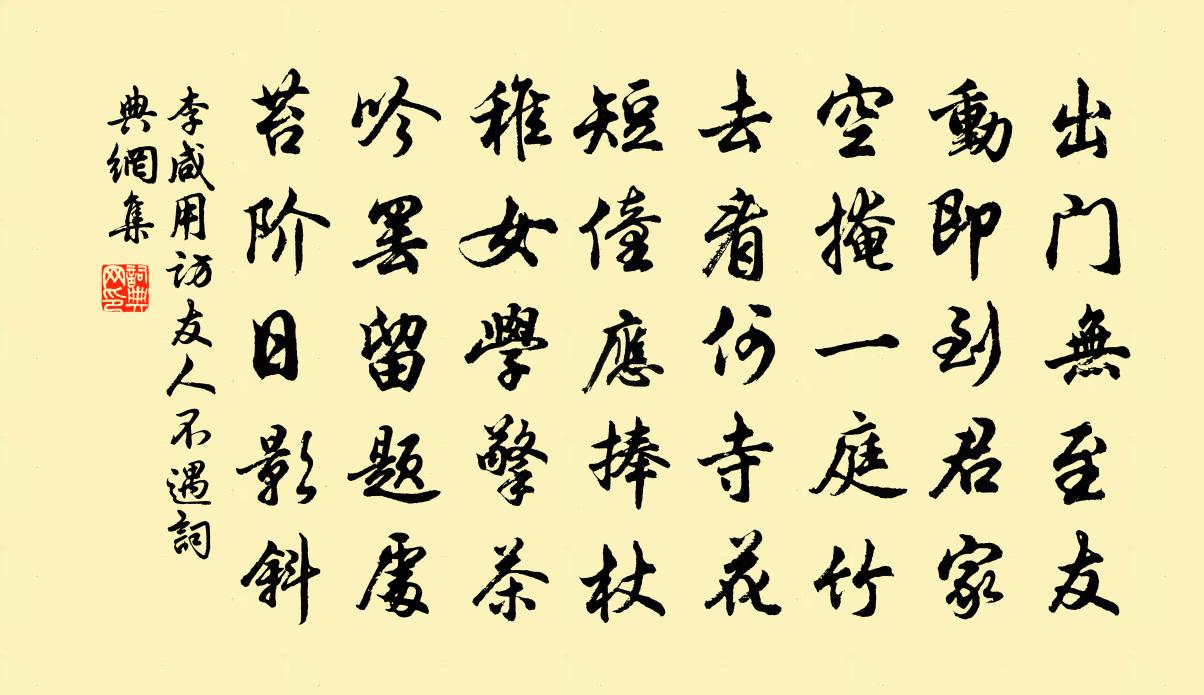 出门無至友
動即到君家
空掩一庭竹
去看何寺花
短僮應捧杖
稚女學擎茶
吟罢留题處
苔阶日影斜
李咸用访友人不遇詞
典網集
詞典
网印